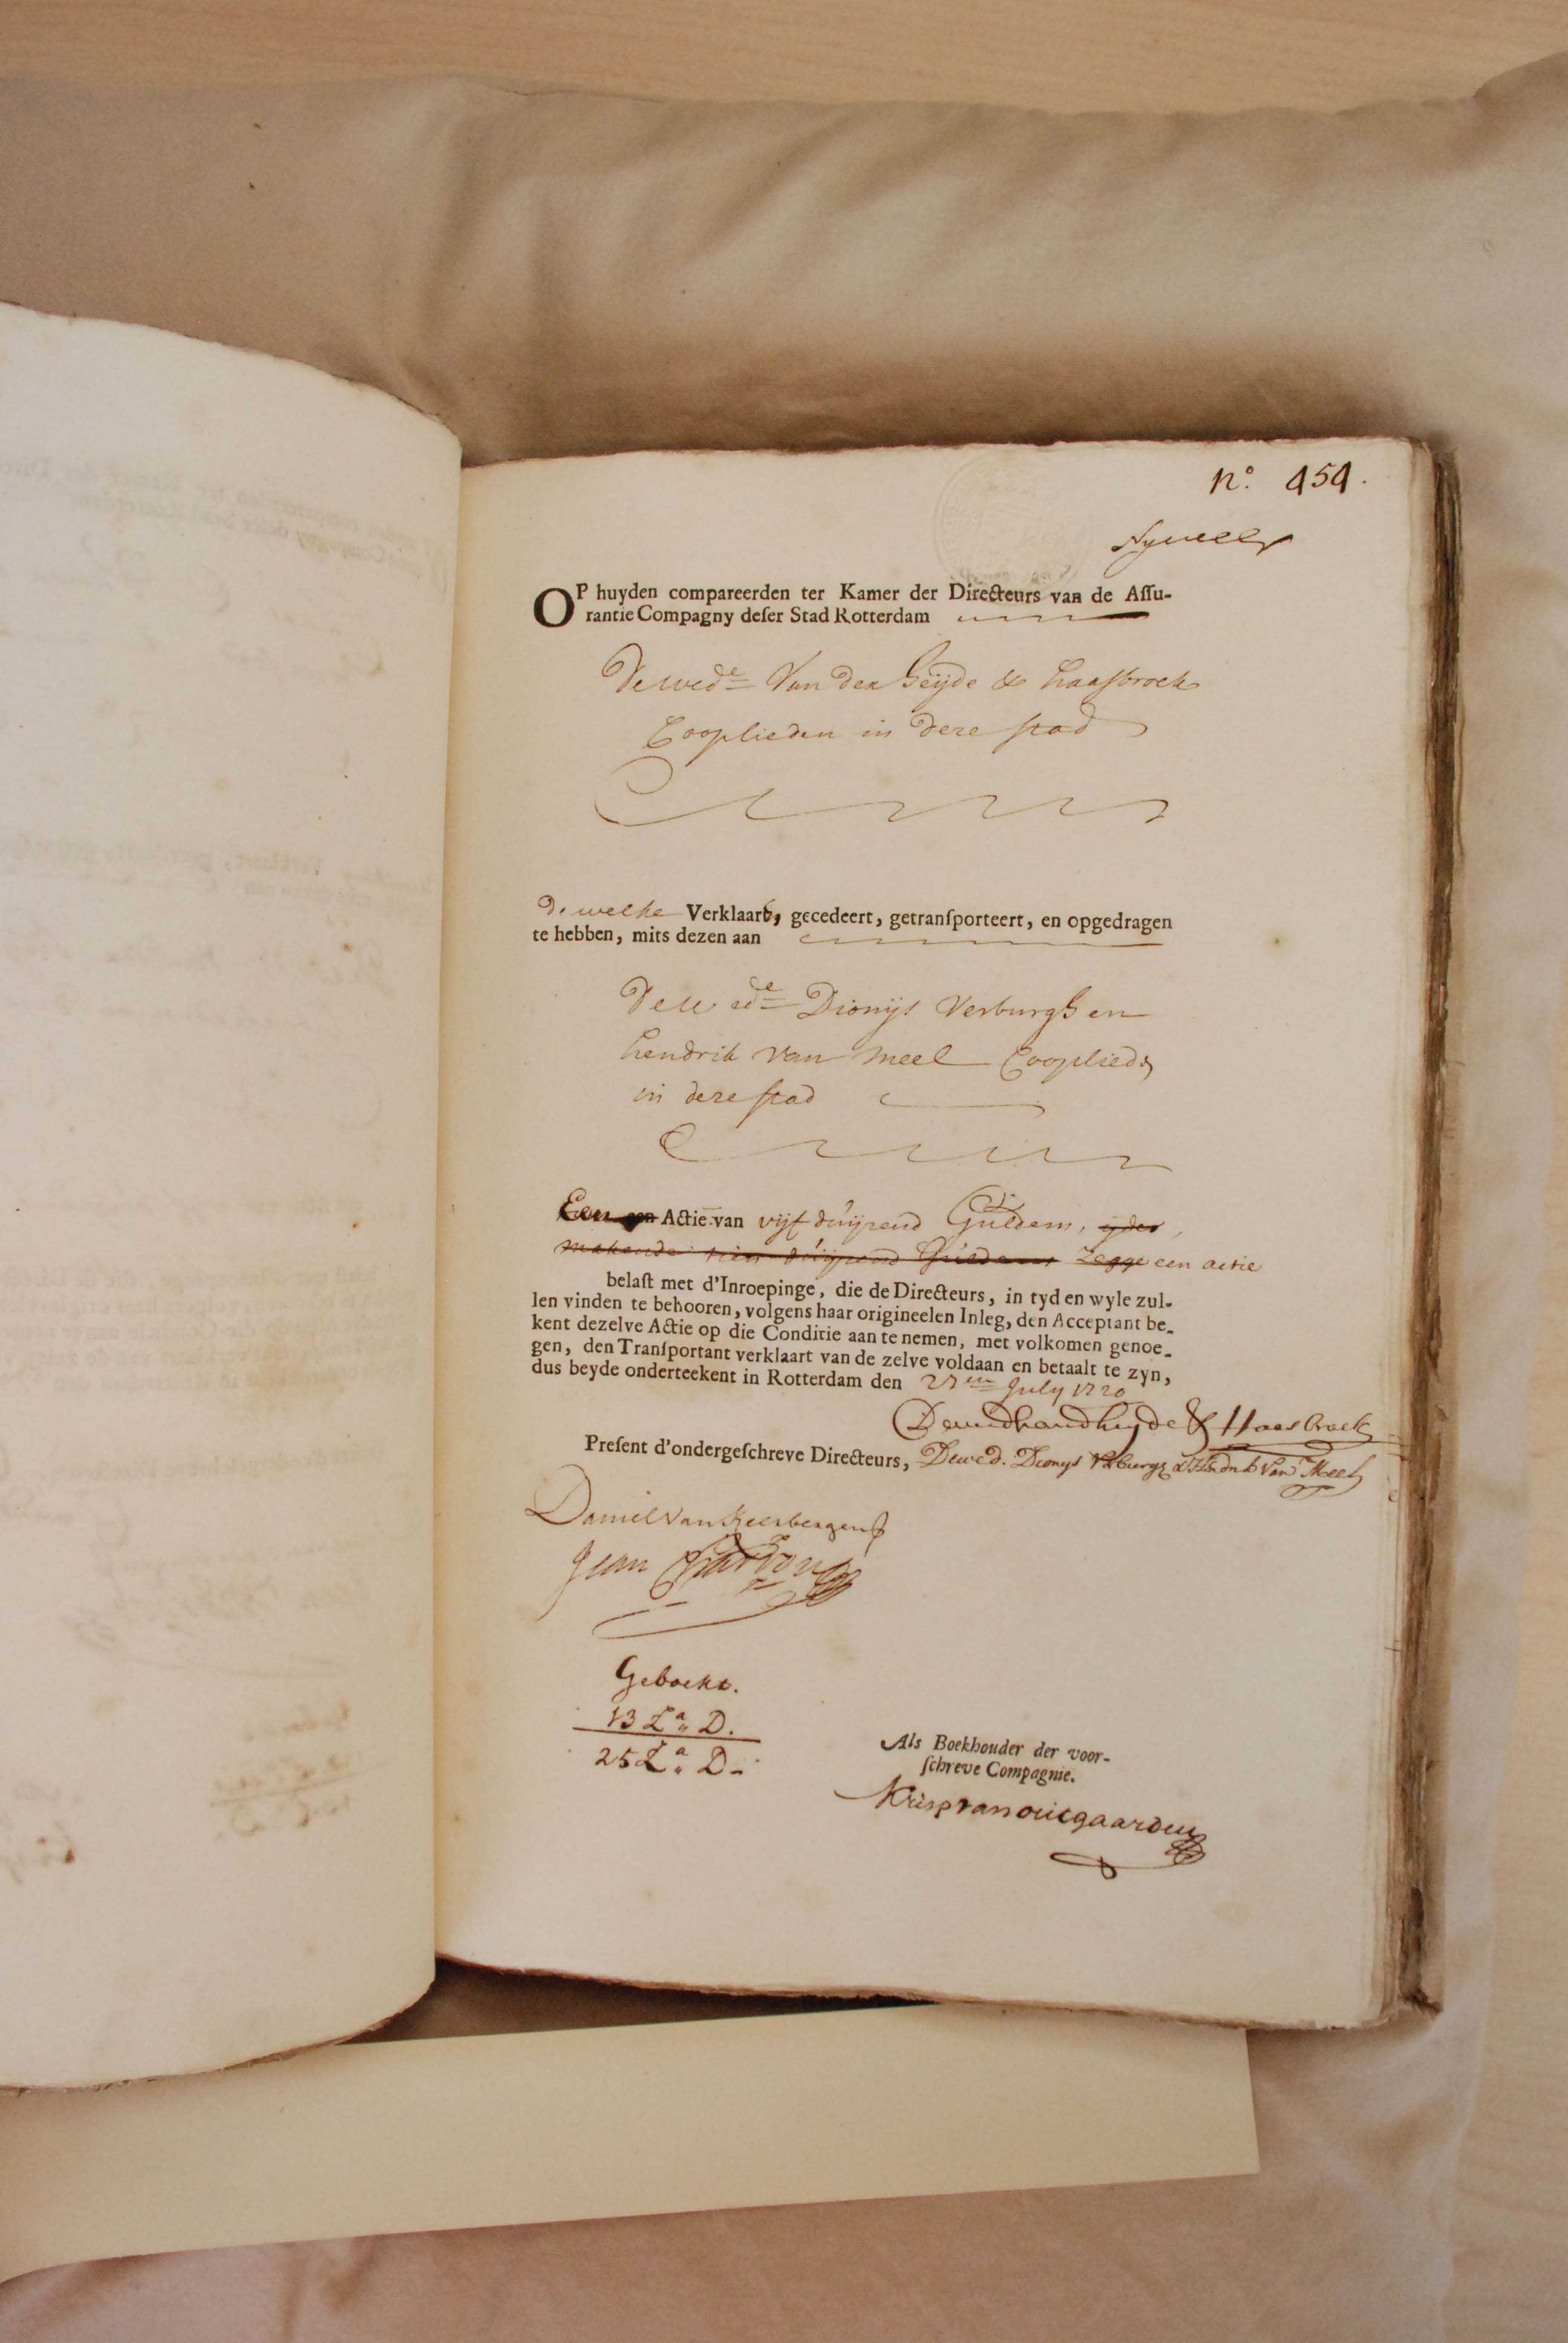 n.° 454.
OP huyden compareerden ter Kamer der Directeurs van de Aſſu-
rantie Compagny deſer Stad Rotterdam
De wede Van der heyde & haasbroek
Cooplieden in deze stad
de welke Verklaard, gecedeert, getranſporteert, en opgedragen
te hebben, mits dezen aan
De wede Dionys Verburgh en
hendrik van meel Cooplieden
in deze stad
Een Actie van vijf duijzend Guldens, ijder
makende tien duijzend Guldens Zegge een actie
belaſt met d'Inroepinge, die de Directeurs, in tyd en wyle zul-
len vinden te behooren, volgens haar origineelen Inleg, den Acceptant be-
kent dezelve Actie op die Conditie aan te nemen, met volkomen genoe-
gen, den Tranſportant verklaart van de zelve voldaan en betaalt te zyn,
dus beyde onderteekent in Rotterdam den 27en July 1720
De wed van d heyde & Haesbroek
Preſent d'ondergeſchreve Directeurs, De wed. Dionys Verburgh & Hendrik van Meel
Daniel van Keersbergen
Jean
Geboekt.
13 La D.
25 La D.
Als Boekhouder der voor-
ſchreve Compagnie.
Krisp van outgaarden